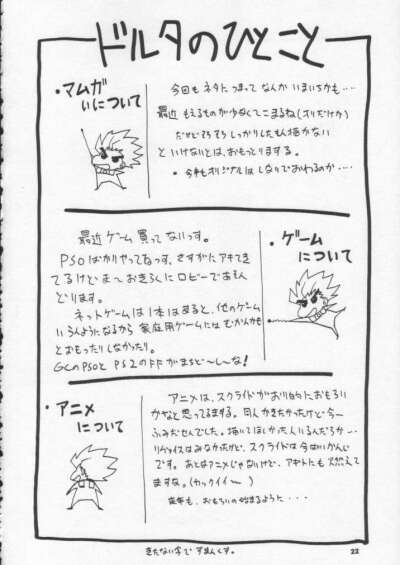 ドルタのひとこと
・マムガ
いについて
今回もネタにつまってなんか いまいちかも‥‥
最近 もえるものが少なくてこまるね(オリだけか)
だけどそろそろ しっかりしたもん描かない
といけないとは、おもっとりまする。
・今年もオリジナルは しなりでおわるのか‥‥
・ゲーム
について
最近 ゲーム 買って ないっす。
PSOばかりやってるっす。さすがに アキてき
てるけど まーおきらくに ロビーで あそん
どります。
ネットゲームは1本はまると、他のゲーム
いらんようになるから 家庭用ゲームには むかんかも
とおもったりしなかったり。
GCのPSOと PS2のFFがまちど〜し〜な!
・アニメ
について
アニメは、スクライドがおり的に おもろい
かなと思ってるまする。同人かきたかったけど 今一
ふみだせんでした。描いてほしかった人いるんだろか…
リヴァイスはみなかったけど、スクライドは今はいかんじ
です。あとはアニメじゃないけど、アギトにも 燃えて
ますな。(カックイイー)
来年も、おもろいの始まるように・・・
きたない字で すまんくす。
22